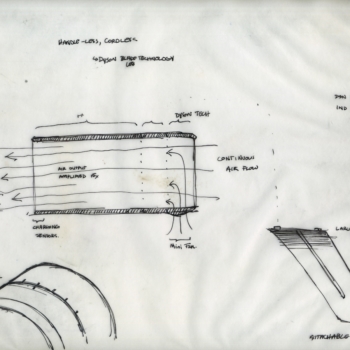 HANDLE-LESS, CORDLESS
DYSON BLADE TECHNOLOGY
DYSON TECH
AIR OUTPUT
AMPLIFIED
CONTINUOUS
AIR FLOW
CHARGING
MINI FAN
ATTACHABLE